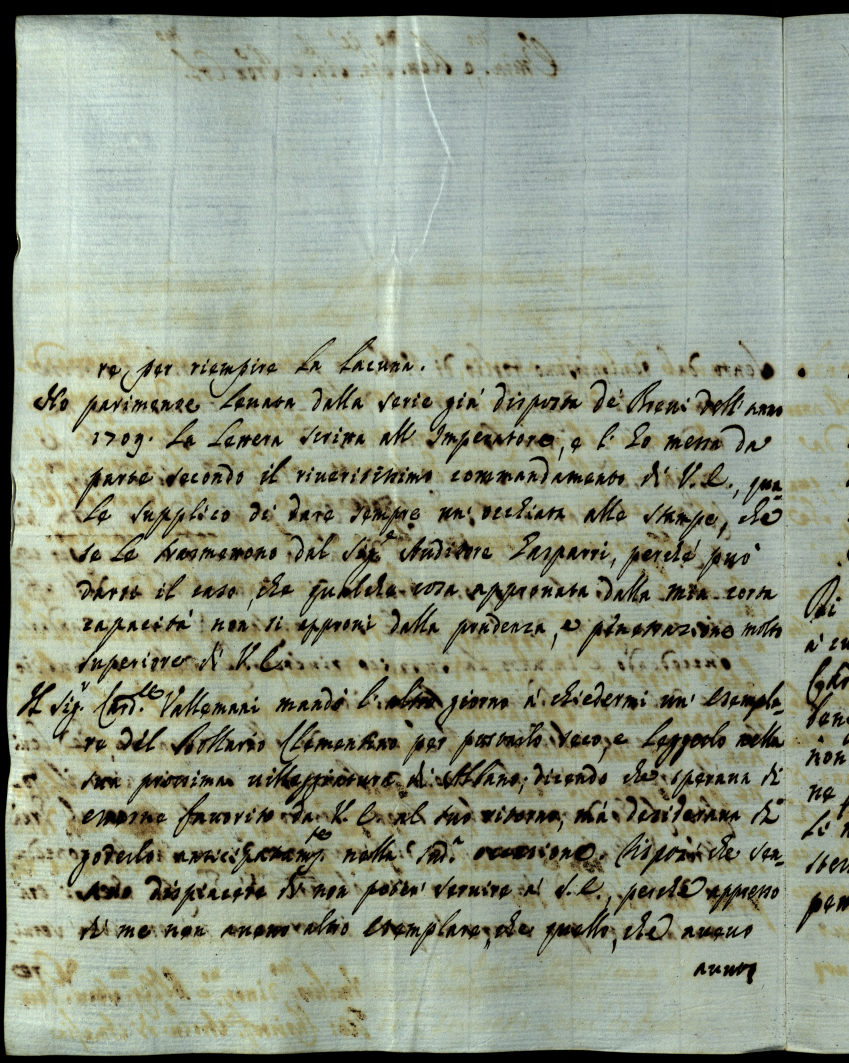 re per riempire la lacuna.
Ho parimente levata dalla serie già disposta de' Brevi dell'anno
1709. la lettera scritta all' Imperatore, e l' ho messa da
parte secondo il riveritissimo commandamento di V. E., qua
le supplico di dare sempre un' occhiata alle stampe, che
se le trasmettono dal Sig.e Auditore Gasparri, perché può
darsi il caso, che qualche cosa approvata dalla mia corta
capacità non si approvi dalla prudenza, e penetrazione molto
superiore di V. E.
Il Sig.r Card.le Vallemani mandò l'altro giorno à chiedermi un' esempla-
re del Bollario Clementino per portarlo seco, e leggerlo nella
sua prossima villeggiatura di Albano, dicendo che sperava di
esserne favorito da V. E. al suo ritorno, mà desiderava di
goderlo anticipatam.te nella sud.a occasione. Risposi che sen-
tivo dispiacere di non poter servire à S. E., perché appresso
di me non avevo altro esemplare, che quello, che avevo